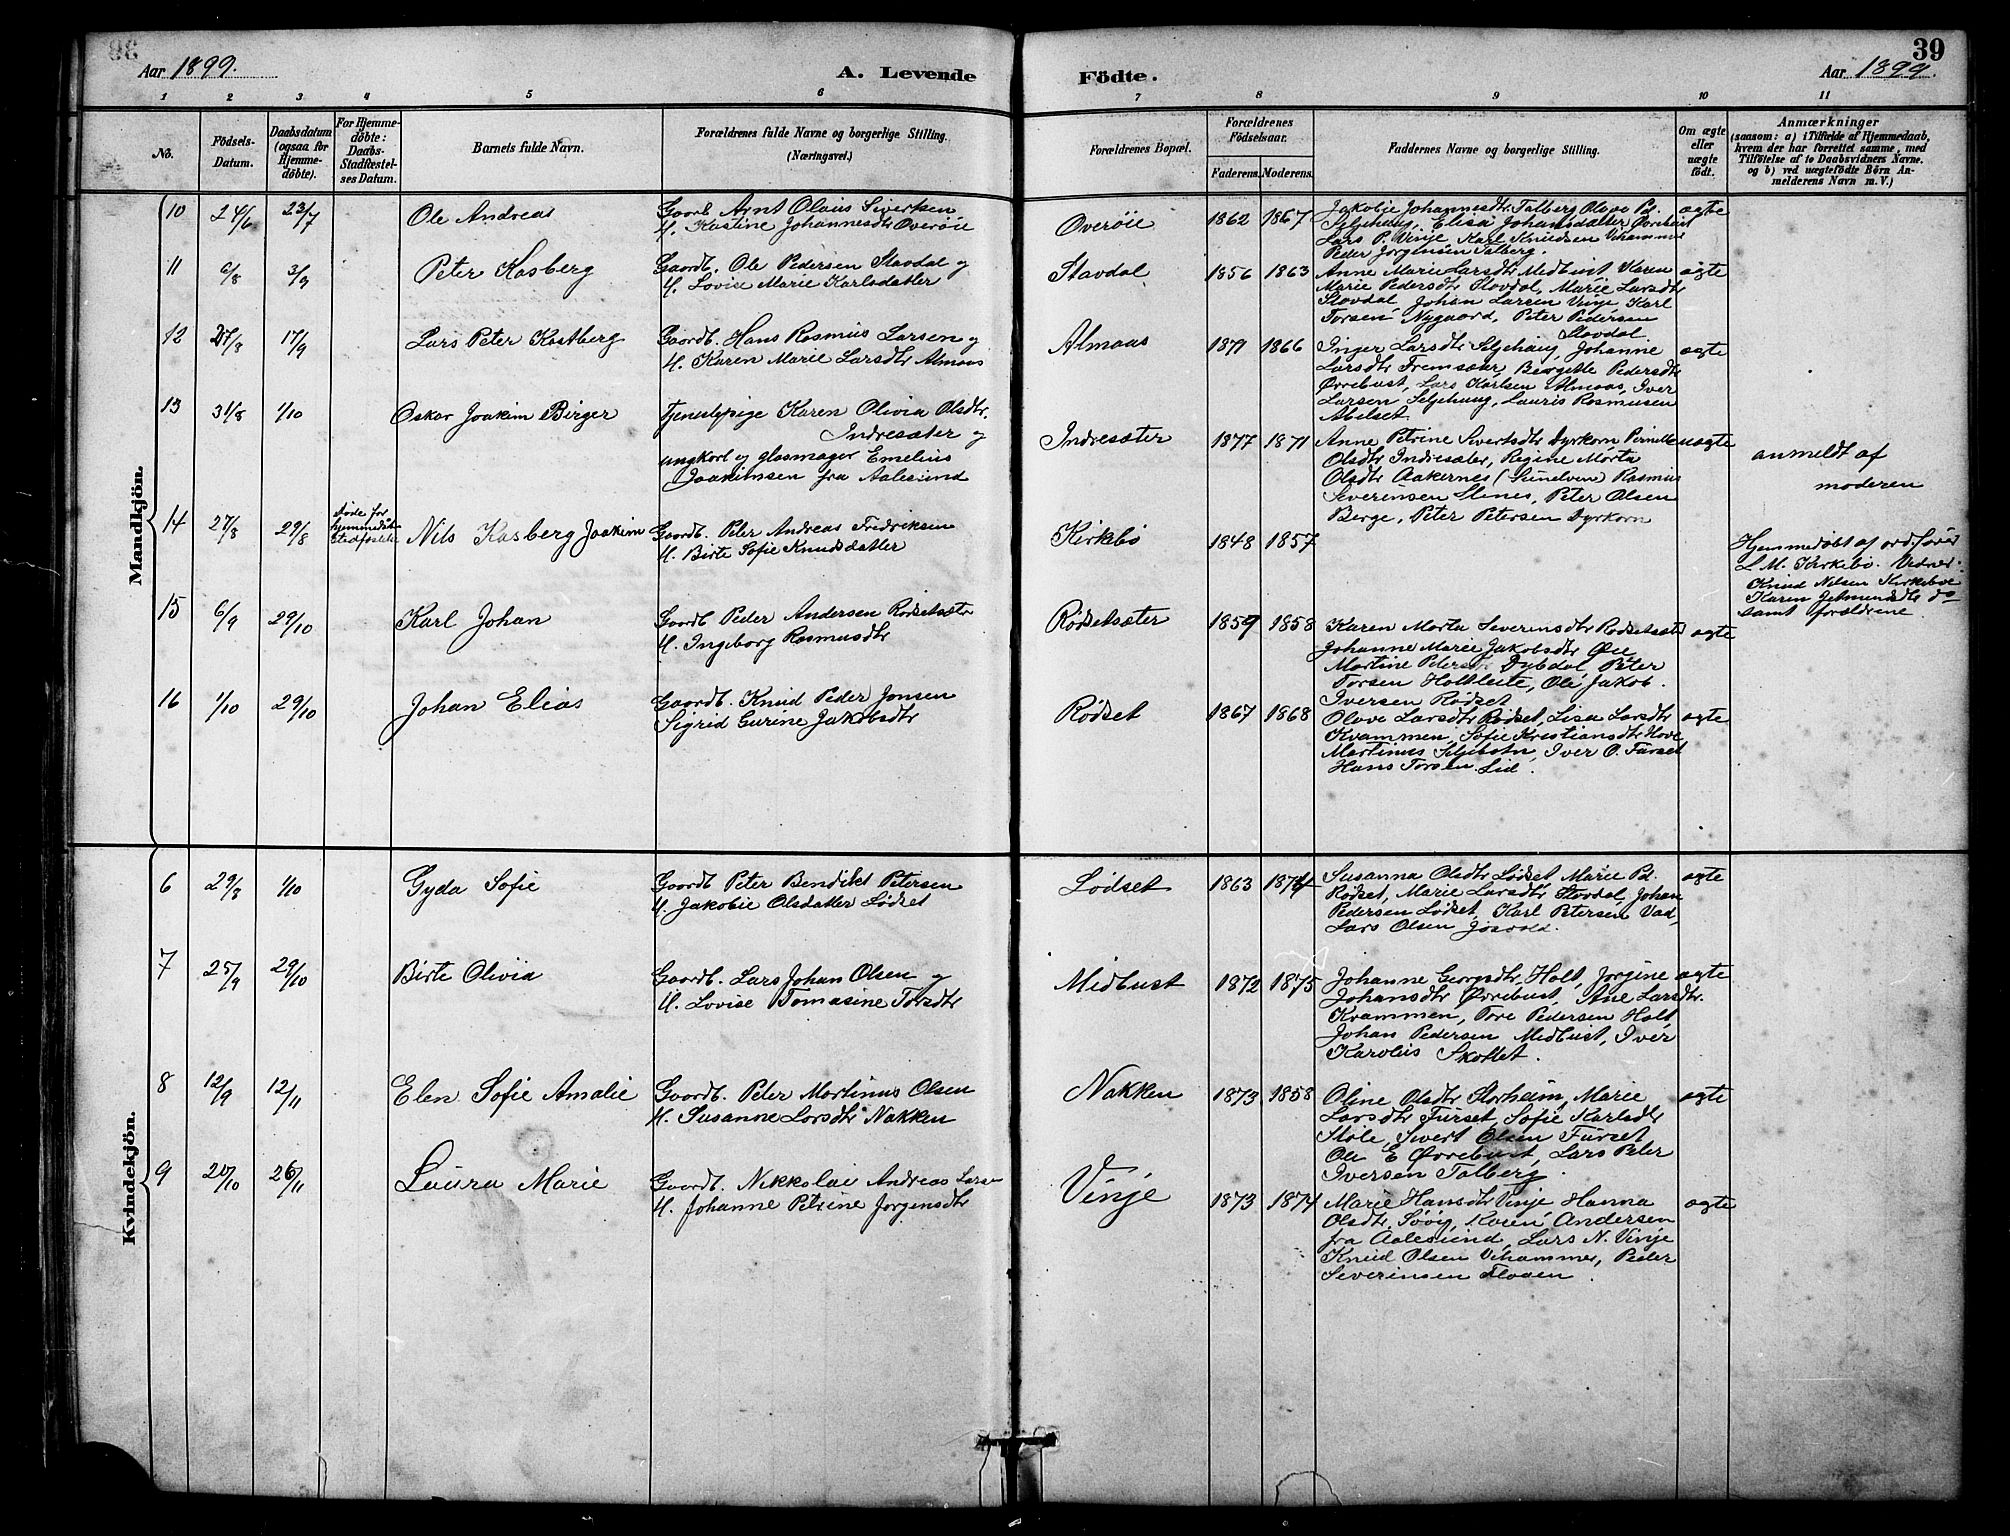 Aar 1899.
A. Levende Födte.
39
Aar 1899.
1 2 3 4 5 6 7 8 9 10 11
No.
Födsels-Datum.
Daabsdatum (ogsaa for Hjemme-döbte).
For Hjemme-döbte: Daabs-Stadfæstel-ses Datum.
Barnets fulde Navn.
Forældrenes fulde Navne og borgerlige Stilling.
(Næringsvei.)
Forældrenes Bopæl.
Forældrenes Födselsaar.
Faderens. Moderens.
Faddernes Navne og borgerlige Stilling.
Om ægte eller uægte födt.
Anmærkninger
(saasom: a) i Tilfælde af Hjemmedaab,
hvem der har forrettet samme, med
Tilföielse af to Daabsvidners Navne.
og b) ved uægtefödte Börn An-
melderens Navn m. V.)
Mandkjön.
10 24/6 23/7 Ole Andreas
Gaardb. Arnt Olaus Sivertsen
H. Kastine Johannesdtr Overøie
Overöie 1862 1867
Jakobie Johannesdtr Talberg Olave Ps.
Seljehaug, Elisa Johansdatter Ørrebust
Lars P. Vinje, Karl Knudsen Vihammer
Peder Jørgensen Talberg.
ægte
11 6/8 3/9 Peter Kasberg
Gaardb. Ole Pedersen Stavdal og
H. Lovise Marie Karlsdatter
Stavdal 1856 1863
Anne Marie Larsdtr Medbust Karen
Marie Pedersdtr Stovdal, Marie Larsdtr
Stovdal Johan Larsen Vinje Karl
Torsen Nygaard, Peter Pedersen
Stovdal
ægte
12 27/8 17/9 Lars Peter Kastberg
Gaardb. Hans Rasmus Larsen og
H. Karen Marie Larsdtr Almaas
Almaas 1871 1866
Inger Larsdtr Seljehaug, Johanne
Larsdtr Fremsæter, Bergitte Pedersdtr
Ørrebust, Lars Karlsen Almaas, Iver
Larsen Seljehaug, Lauris Rasmusen
Abelset
ægte
13 31/8 1/10 Oskar Joakim Birger
Tjenestepige Karen Olivia Olsdtr.
Indresæter og
ungkarl og glasmager Emelius
Joakimsen fra Aalesund
Indresæter 1877 1871
Anne Petrine Sivertsdtr Dyrkorn Pernille
Olsdtr Indresæter, Regine Marta
Olsdtr Aakernes (Sunelven) Rasmus
Severensen Stenes, Peter Olsen
Berge, Peter Petersen Dyrkorn
uægte
anmeldt af
moderen
14 27/8 29/8
døde før
hjemmedåb
stadfæstelse
Nils Kasberg Joakim
Gaardb. Peter Andreas Fredriksen
H. Birte Sofie Knudsdatter
Kirkebø 1848 1857
Hjemmedøbt af ordfører
L M. Kirkebø. Vidner:
Knud Nilsen Kirkebøe
Karen Jetmundsdtr do
samt forældrene
15 6/9 29/10 Karl Johan
Gaardb Peder Andersen Rødsetsæter
H. Ingeborg Rasmusdtr
Rødsetsæter 1859 1858
Karen Marta Severinsdtr Rødsetsæter
Johanne Marie Jakobsdtr Øie
Martine Petersdtr Dybdal, Peter
Torsen Holtleite, Ole Jakob.
Iversen Rødset
ægte
16 1/10 29/10 Johan Elias
Gaardb. Knud Peder Jonsen
Sigrid Gurine Jakobsdtr
Rødset 1867 1868
Olave Larsdtr Rødset, Lisa Larsdtr
Kvammen, Sofie Kristiansdtr Hove
Martinus Seljebotn, Iver O. Furset
Hans Torsen Lid.
ægte
Kvindekjön.
6 29/8 1/10 Gyda Sofie
Gaardb Peter Bendikt Petersen
H. Jakobie Olsdatter Lødset
Lødset 1863 1874
Susanna Olsdtr Lødset Marie Ps.
Rødset, Marie Larsdtr Stovdal, Johan
Pedersen Lødset, Karl Petersen Vad,
Lars Olsen Jøsvold.
ægte
7 25/9 29/10 Birte Olivia
Gaardb. Lars Johan Olsen og
H. Lovise Tomasine Torsdtr
Midbust 1872 1875
Johanne Georgsdtr Holt, Jorgine
Johansdtr Ørrebust, Ane Larsdtr.
Kvammen, Tore Pedersen Holt,
Johan Pedersen Medbust, Iver
Karolus Skottet.
ægte
8 12/9 12/11 Elen Sofie Amalie
Gaardb. Peter Martinus Olsen
H. Susanne Larsdtr Nakken
Nakken 1873 1858
Oline Olsdtr Storheim, Marie
Larsdtr Furset, Sofie Karlsdtr
Støle, Sivert Olsen Furset
Ole E Ørrebust, Lars Peter
Iversen Talberg.
ægte
9 20/10 26/11 Laura Marie
Gaardb. Nikkolai Andreas Larsen
H. Johanne Petrine Jørgensdtr
Vinje 1873 1874
Marie Hansdtr Vinje, Hanna
Olsdtr. Søvig, Karen Andersen
fra Aalesund, Lars N. Vinje
Knud Olsen Vihammer, Peder
Severinsen Floven.
ægte